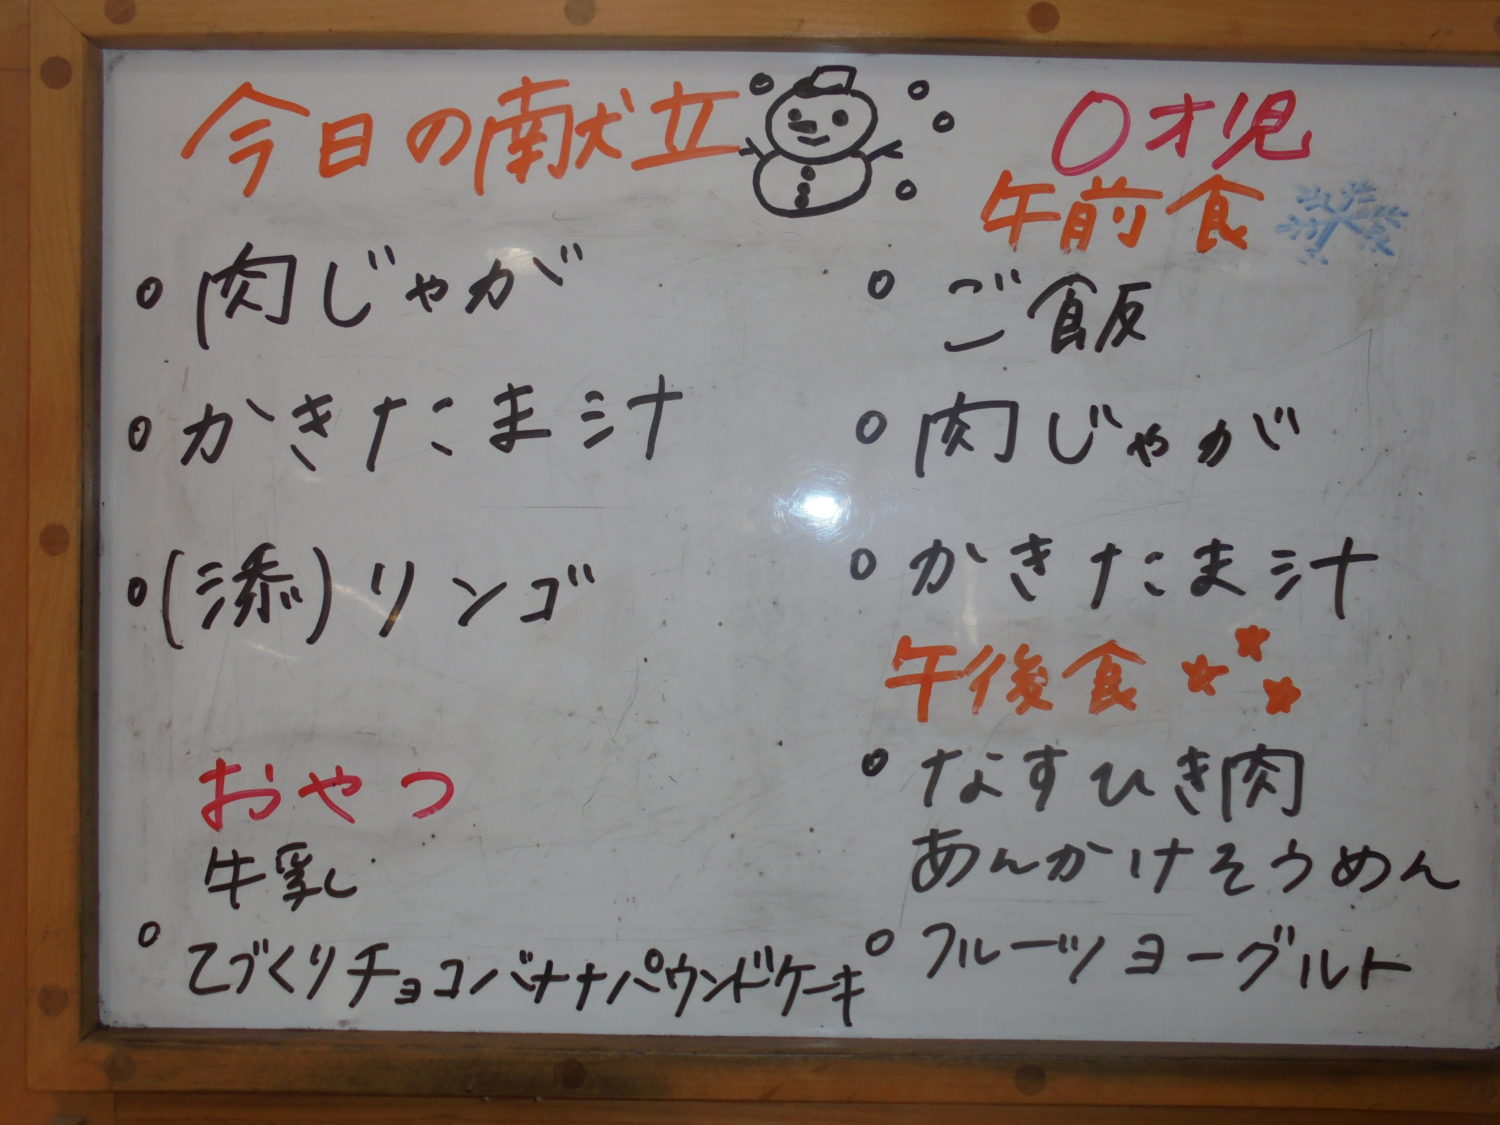 今日の献立
○ 肉じゃが
○ かきたま汁
○ (添)リンゴ
おやつ
牛乳
○ てづくりチョコバナナパウンドケーキ
0才児
午前食
○ ご飯
○ 肉じゃが
○ かきたま汁
午後食
○ なすひき肉
あんかけそうめん
○ フルーツヨーグルト